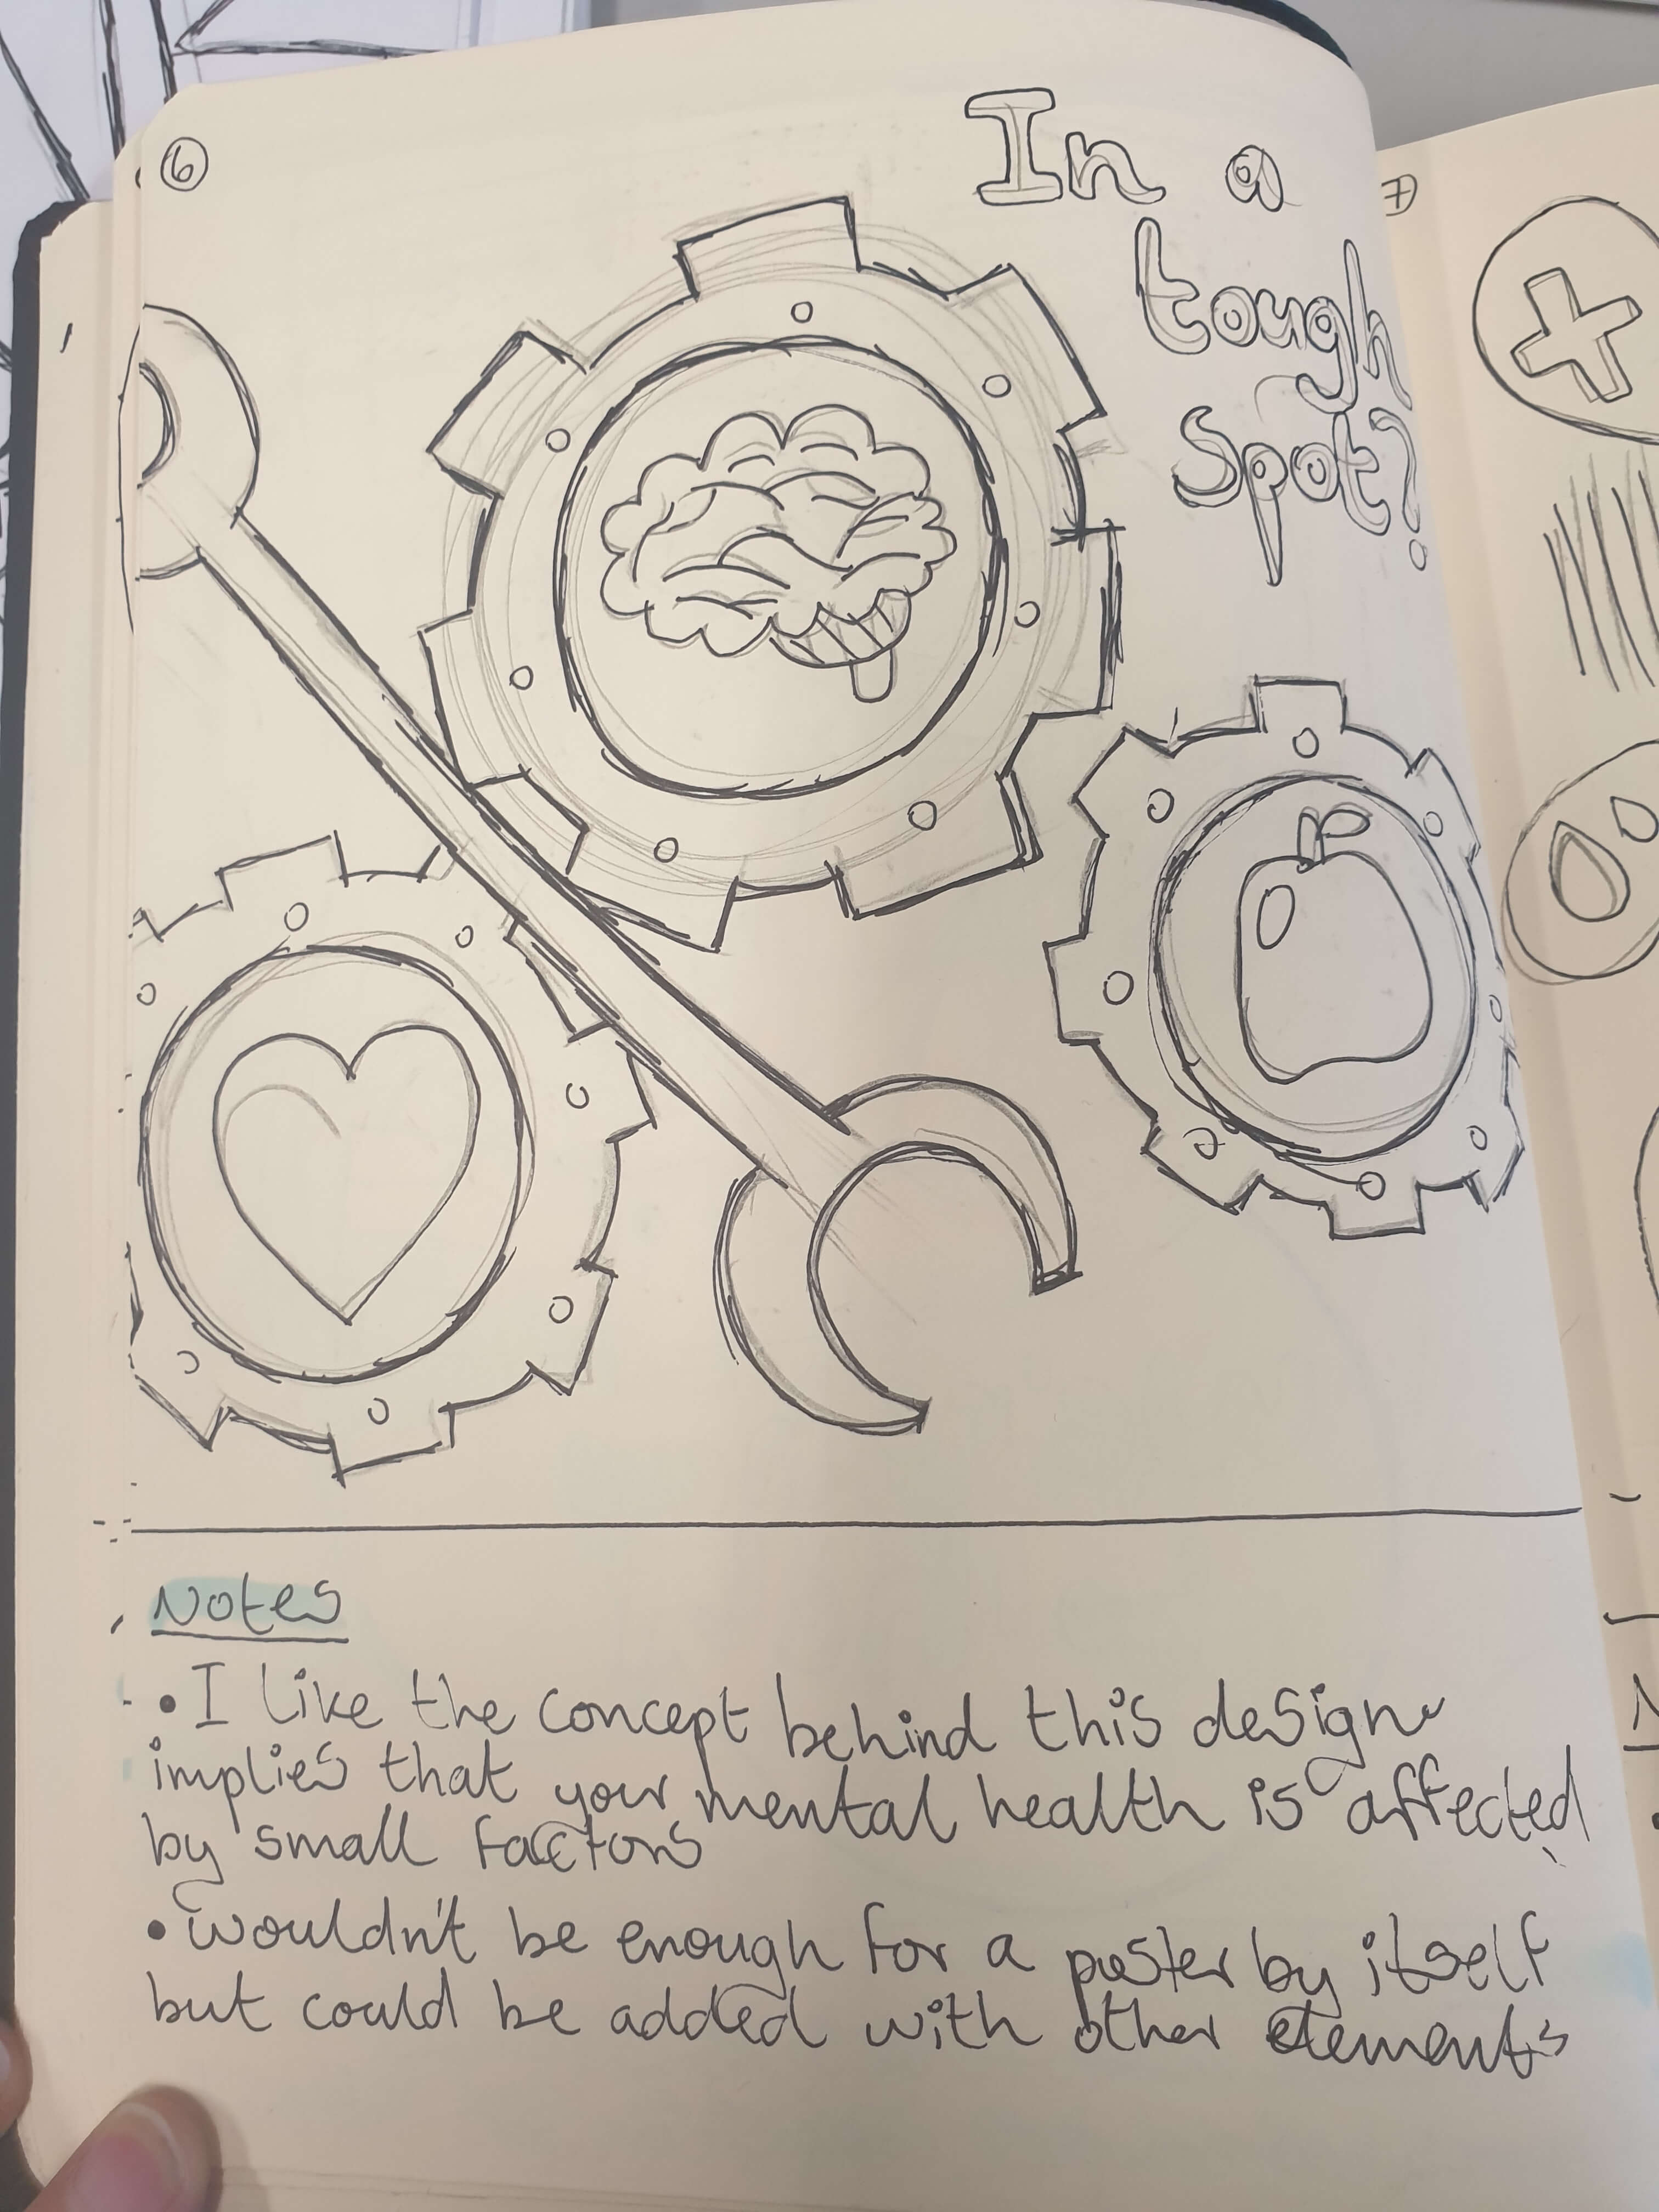 6
In a
tough
Spot?
7
Notes
• I like the concept behind this design
implies that your mental health is affected
by small factors
• wouldn't be enough for a poster by itself
but could be added with other elements